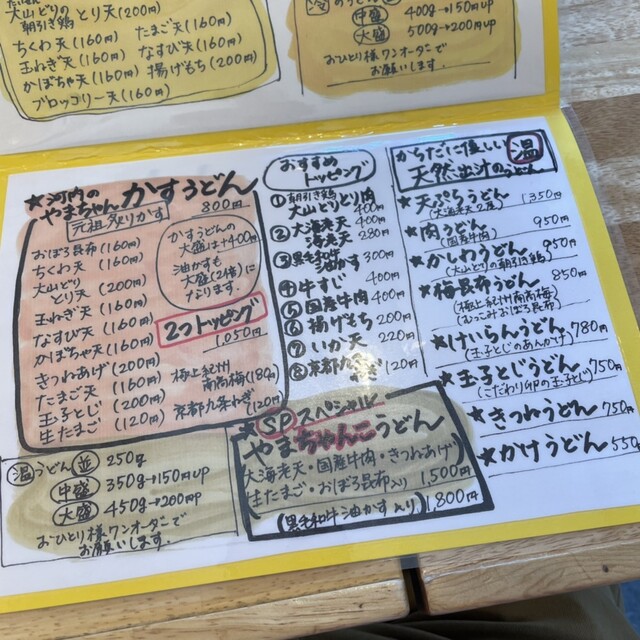 大山どりの
朝引き鶏 とり天(200円)
ちくわ天(160円)
たまご天(160円)
玉ねぎ天(160円)
なすび天(160円)
かぼちゃ天(160円)
揚げもち(200円)
ブロッコリー天(160円)
中盛 400g→150円up
大盛 500g→200円up
おひとり様ワンオーダーで
お願いします。
★河内の
やまちゃん かすうどん
元祖炙りかす 800円
おぼろ昆布(160円)
ちくわ天(160円)
大山どり
とり天(200円)
玉ねぎ天(160円)
なすび天(160円)
かぼちゃ天(160円)
きつねあげ(200円)
たまご天(160円)
玉子とじ(200円)
生たまご(120円)
かすうどんの
大盛は+400円
油かすも
大盛(2倍)に
なります。
2つトッピング
1,050円
極上紀州
南高梅(180円)
京都九条ねぎ(120円)
おすすめ
トッピング
①朝引き鶏
大山どりとり肉 400円
②大海老天 400円
海老天 280円
③黒毛和牛
油かす 300円
④牛すじ 400円
⑤国産牛肉 400円
⑥揚げもち 200円
⑦いか天 220円
⑧京都九条ねぎ 120円
からだに優しい 温
天然出汁のうどん
★天ぷらうどん 1,350円
(大海老天2尾)
★肉うどん 950円
(国産牛肉)
★かしわうどん 950円
(大山どりの朝引き鶏)
★梅昆布うどん 850円
(極上紀州南高梅)
(むっこみおぼろ昆布)
★けいらんうどん 780円
(玉子とじのあんかけ)
★玉子とじうどん 750円
(こだわり卵の玉子とじ)
★きつねうどん 750円
★かけうどん 550円
温うどん 並 250g
中盛 350g→150円up
大盛 450g→200円up
おひとり様ワンオーダーで
お願いします。
★SPスペシャル
やまちゃんこうどん
大海老天・国産牛肉・きつねあげ
生たまご・おぼろ昆布入り 1,500円
(黒毛和牛油かす入り) 1,800円